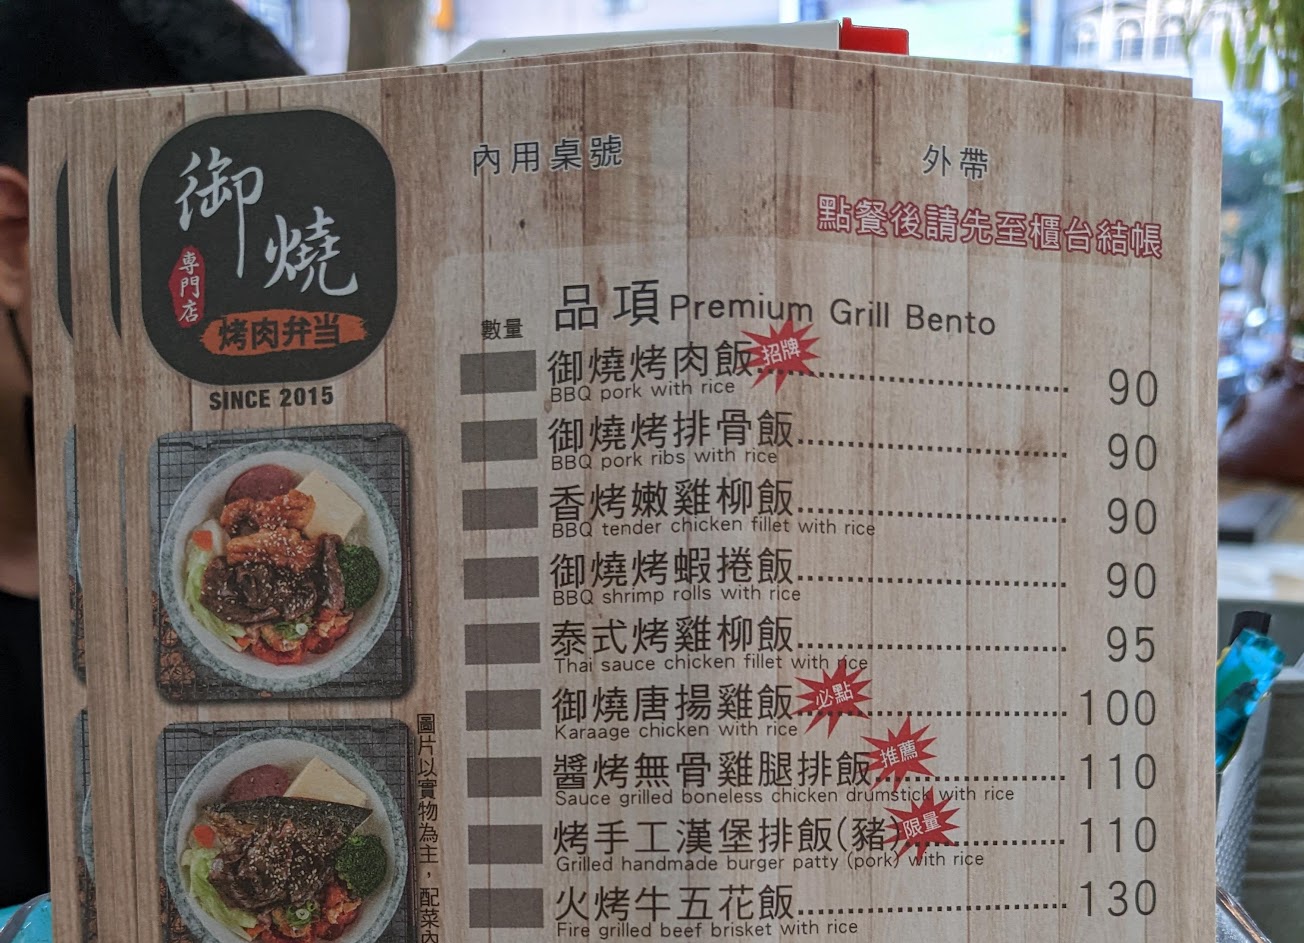 御燒
専門店
烤肉弁当
SINCE 2015
內用桌號
外帶
點餐後請先至櫃台結帳
數量 品項 Premium Grill Bento
御燒烤肉飯 招牌 90
BBQ pork with rice
御燒烤排骨飯 90
BBQ pork ribs with rice
香烤嫩雞柳飯 90
BBQ tender chicken fillet with rice
御燒烤蝦捲飯 90
BBQ shrimp rolls with rice
泰式烤雞柳飯 95
Thai sauce chicken fillet with rice
御燒唐揚雞飯 必點 100
Karaage chicken with rice
醬烤無骨雞腿排飯 推薦 110
Sauce grilled boneless chicken drumstick with rice
烤手工漢堡排飯(豬) 限量 110
Grilled handmade burger patty (pork) with rice
火烤牛五花飯 130
Fire grilled beef brisket with rice
圖片以實物為主，配菜內